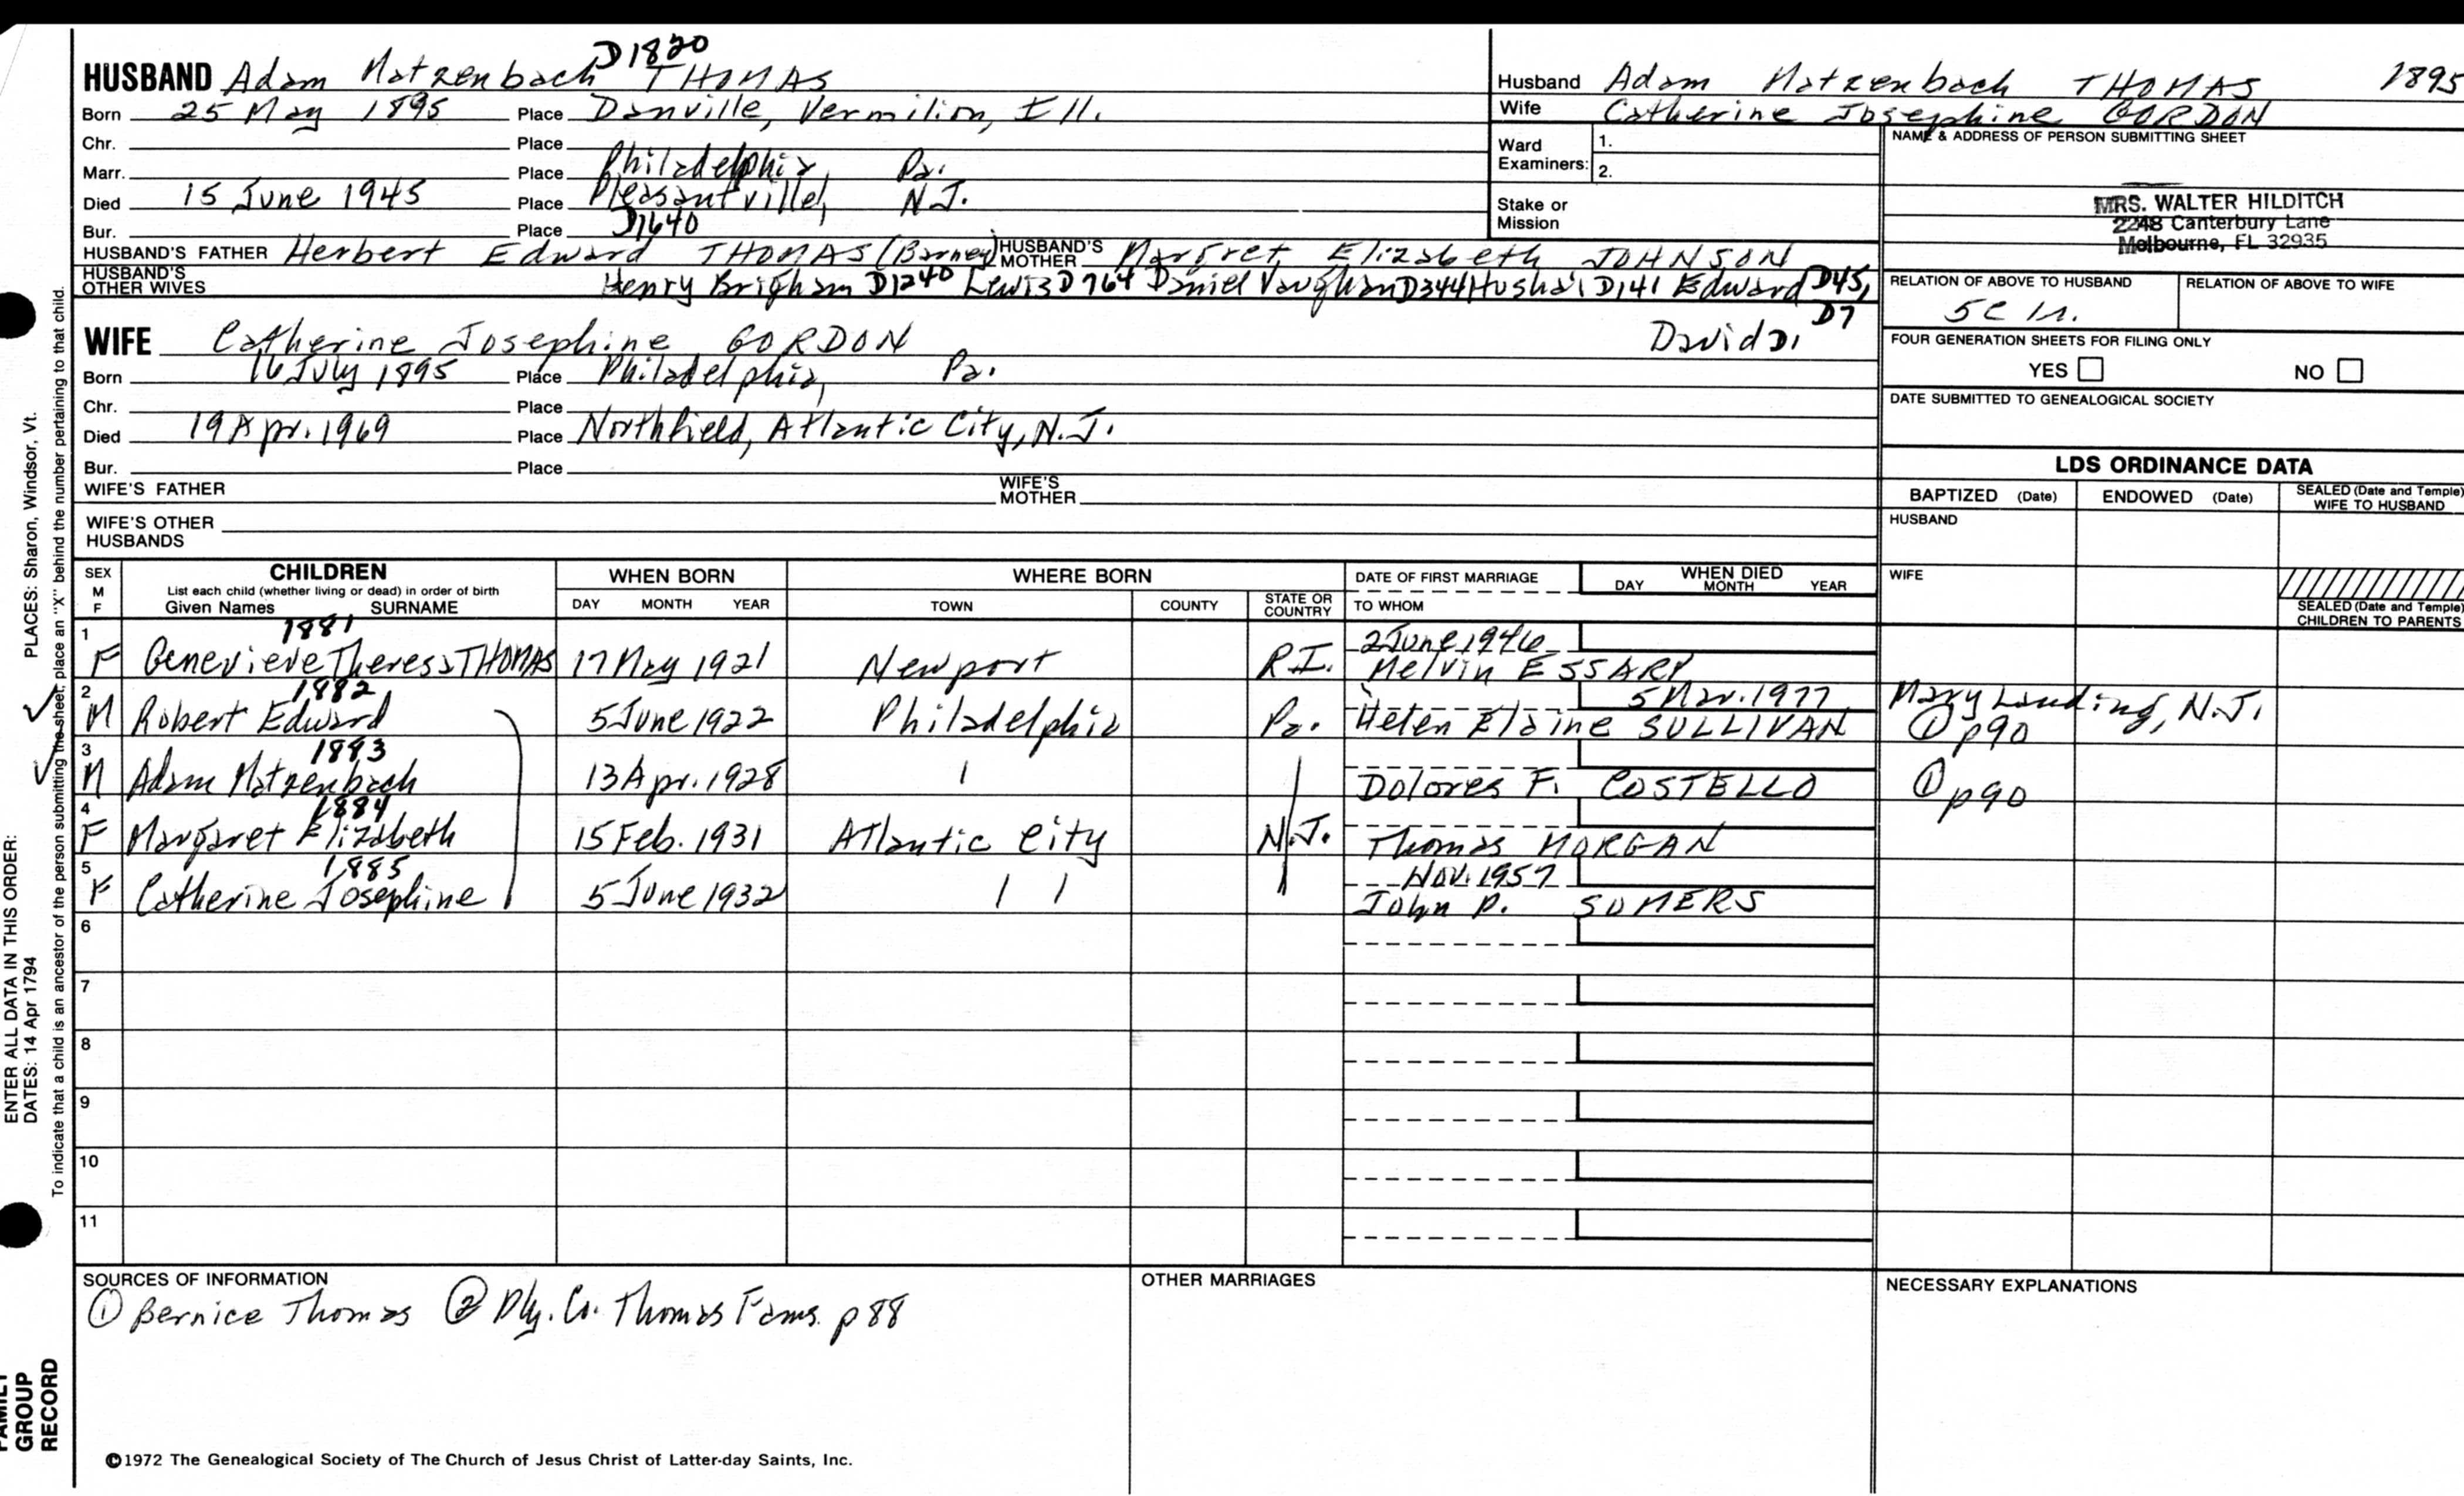 D1820
HUSBAND Adam Matzenbach THOMAS
Born 25 May 1895 Place Danville, Vermilion, Ill.
Chr. Place
Marr. Place Philadelphia, Pa.
Died 15 June 1945 Place Pleasantville, N.J.
Bur. Place D1640
HUSBAND'S FATHER Herbert Edward THOMAS (Barney) HUSBAND'S MOTHER Margret Elizabeth JOHNSON
HUSBAND'S OTHER WIVES Henry Brigham D1240 Lewis D764 Daniel Vaughan D344 Hushai D141 Edward D45,
D7
David D1
WIFE Catherine Josephine GORDON
Born 16 July 1895 Place Philadelphia, Pa.
Chr. Place
Died 19 Apr. 1969 Place Northfield, Atlantic City, N.J.
Bur. Place
WIFE'S FATHER WIFE'S MOTHER
WIFE'S OTHER HUSBANDS
Husband Adam Matzenbach THOMAS 1895
Wife Catherine Josephine GORDON
Ward Examiners: 1.
2.
Stake or Mission
NAME & ADDRESS OF PERSON SUBMITTING SHEET
MRS. WALTER HILDITCH
2248 Canterbury Lane
Melbourne, FL 32935
RELATION OF ABOVE TO HUSBAND RELATION OF ABOVE TO WIFE
5C 1r.
FOUR GENERATION SHEETS FOR FILING ONLY
YES NO
DATE SUBMITTED TO GENEALOGICAL SOCIETY
LDS ORDINANCE DATA
BAPTIZED (Date) ENDOWED (Date) SEALED (Date and Temple) WIFE TO HUSBAND
HUSBAND
WIFE
SEALED (Date and Temple) CHILDREN TO PARENTS
SEX M F CHILDREN WHEN BORN WHERE BORN DATE OF FIRST MARRIAGE WHEN DIED
List each child (whether living or dead) in order of birth
Given Names SURNAME DAY MONTH YEAR TOWN COUNTY STATE OR COUNTRY TO WHOM DAY MONTH YEAR
1 1881 2 June 1946
F Genevieve Theresa THOMAS 17 May 1921 Newport R.I. Melvin ESSARY
2 1882 5 Mar. 1977 Mary Landing, N.J.
M Robert Edward 5 June 1922 Philadelphia Pa. Helen Elaine SULLIVAN ① p90
3 1883
M Adam Matzenbach 13 Apr. 1928 Dolores F. COSTELLO ① p90
4 1884
F Margaret Elizabeth 15 Feb. 1931 Atlantic City N.J. Thomas MORGAN
5 1885 Nov. 1957
F Catherine Josephine 5 June 1932 John P. SOMERS
6
7
8
9
10
11
SOURCES OF INFORMATION
① Bernice Thomas ② Ply. Co. Thomas Fams. p 88
OTHER MARRIAGES
NECESSARY EXPLANATIONS
©1972 The Genealogical Society of The Church of Jesus Christ of Latter-day Saints, Inc.
ENTER ALL DATA IN THIS ORDER:
DATES: 14 Apr 1794 PLACES: Sharon, Windsor, Vt.
To indicate that a child is an ancestor of the person submitting the sheet, place an "X" behind the number pertaining to that child.
FAMILY
GROUP
RECORD